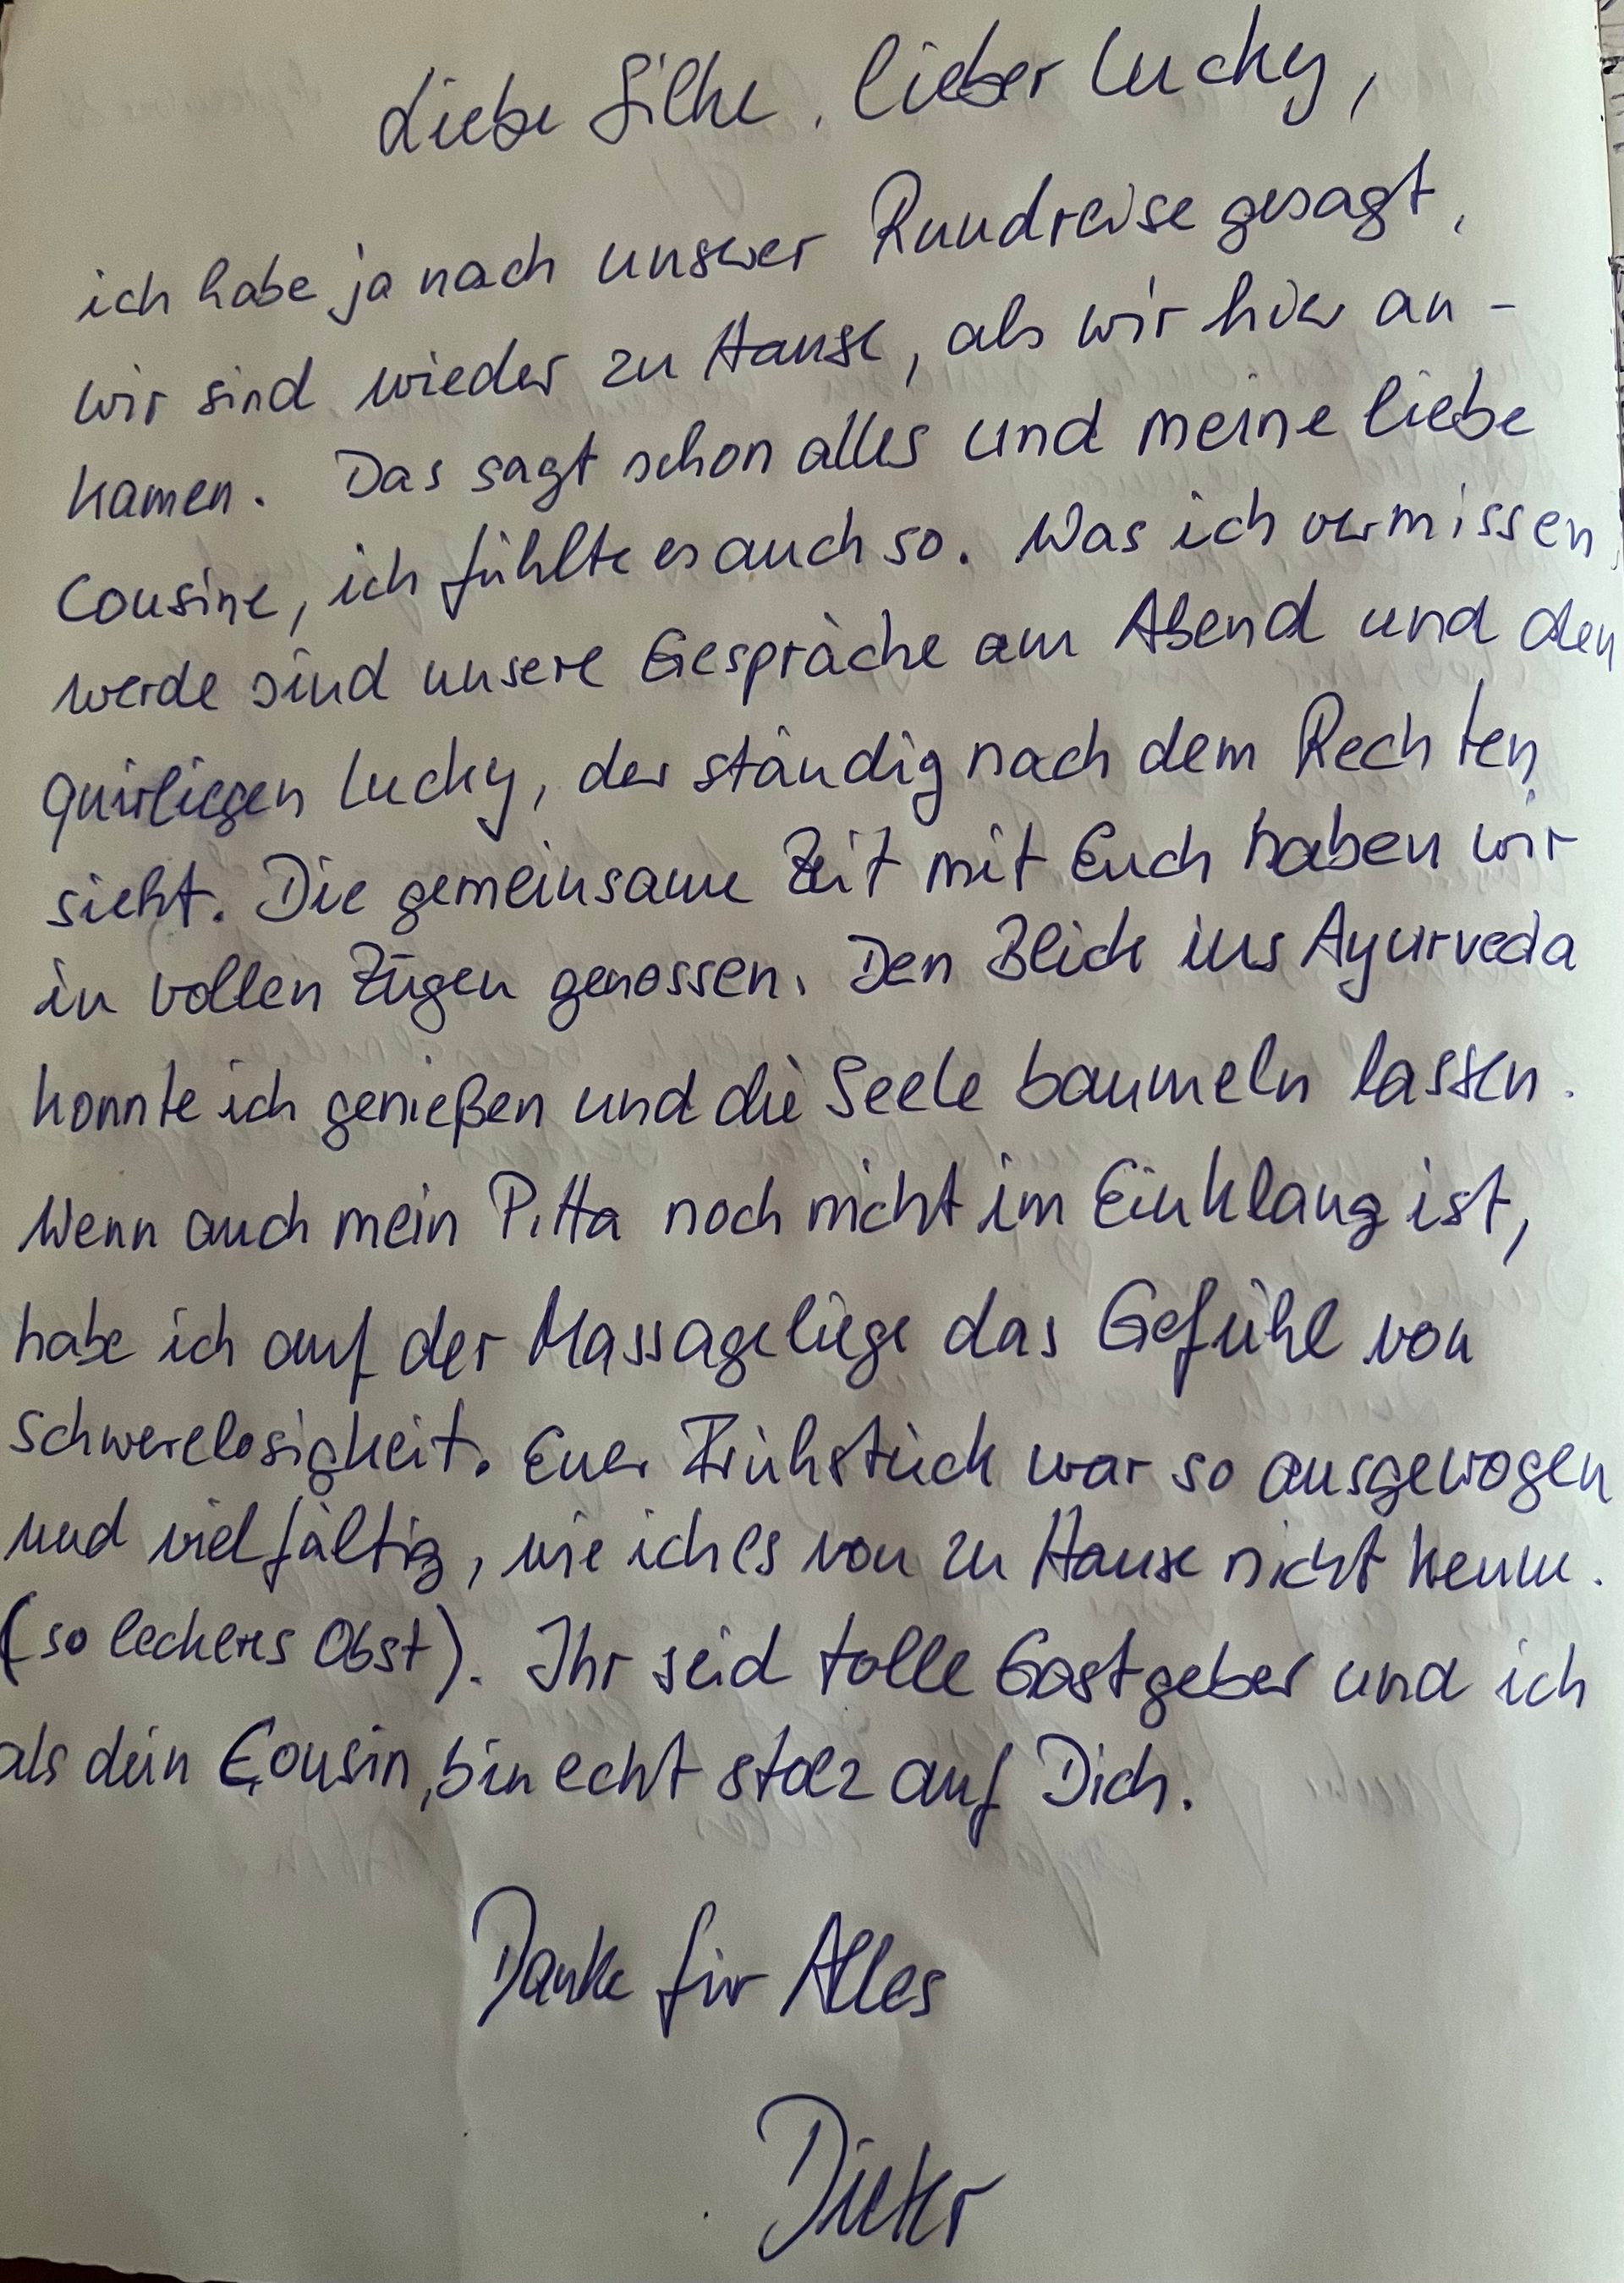 Liebe Silke, lieber Lucky,
ich habe ja nach unserer Rundreise gesagt,
wir sind wieder zu Hause, als wir hier an-
kamen. Das sagt schon alles und meine liebe
Cousine, ich fühlte es auch so. Was ich vermissen
werde sind unsere Gespräche am Abend und den
quirligen Lucky, der ständig nach dem Rechten
sieht. Die gemeinsame Zeit mit Euch haben wir
in vollen Zügen genossen. Den Blick ins Ayurveda
konnte ich genießen und die Seele baumeln lassen.
Wenn auch mein Pitta noch nicht im Einklang ist,
habe ich auf der Massageliege das Gefühl von
Schwerelosigkeit. Euer Frühstück war so ausgewogen
und vielfältig, wie ich es von zu Hause nicht kenne.
(so leckeres Obst). Ihr seid tolle Gastgeber und ich
als dein Cousin, bin echt stolz auf Dich.
Danke für Alles
Dieter